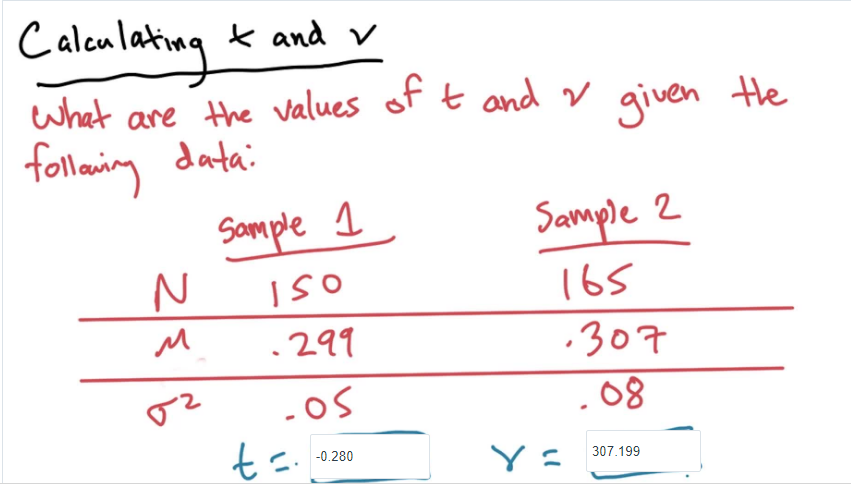 Calculating t and ν
What are the values of t and ν given the
following data:
Sample 1 Sample 2
N 150 165
μ .299 .307
σ² .05 .08
t = -0.280 ν = 307.199